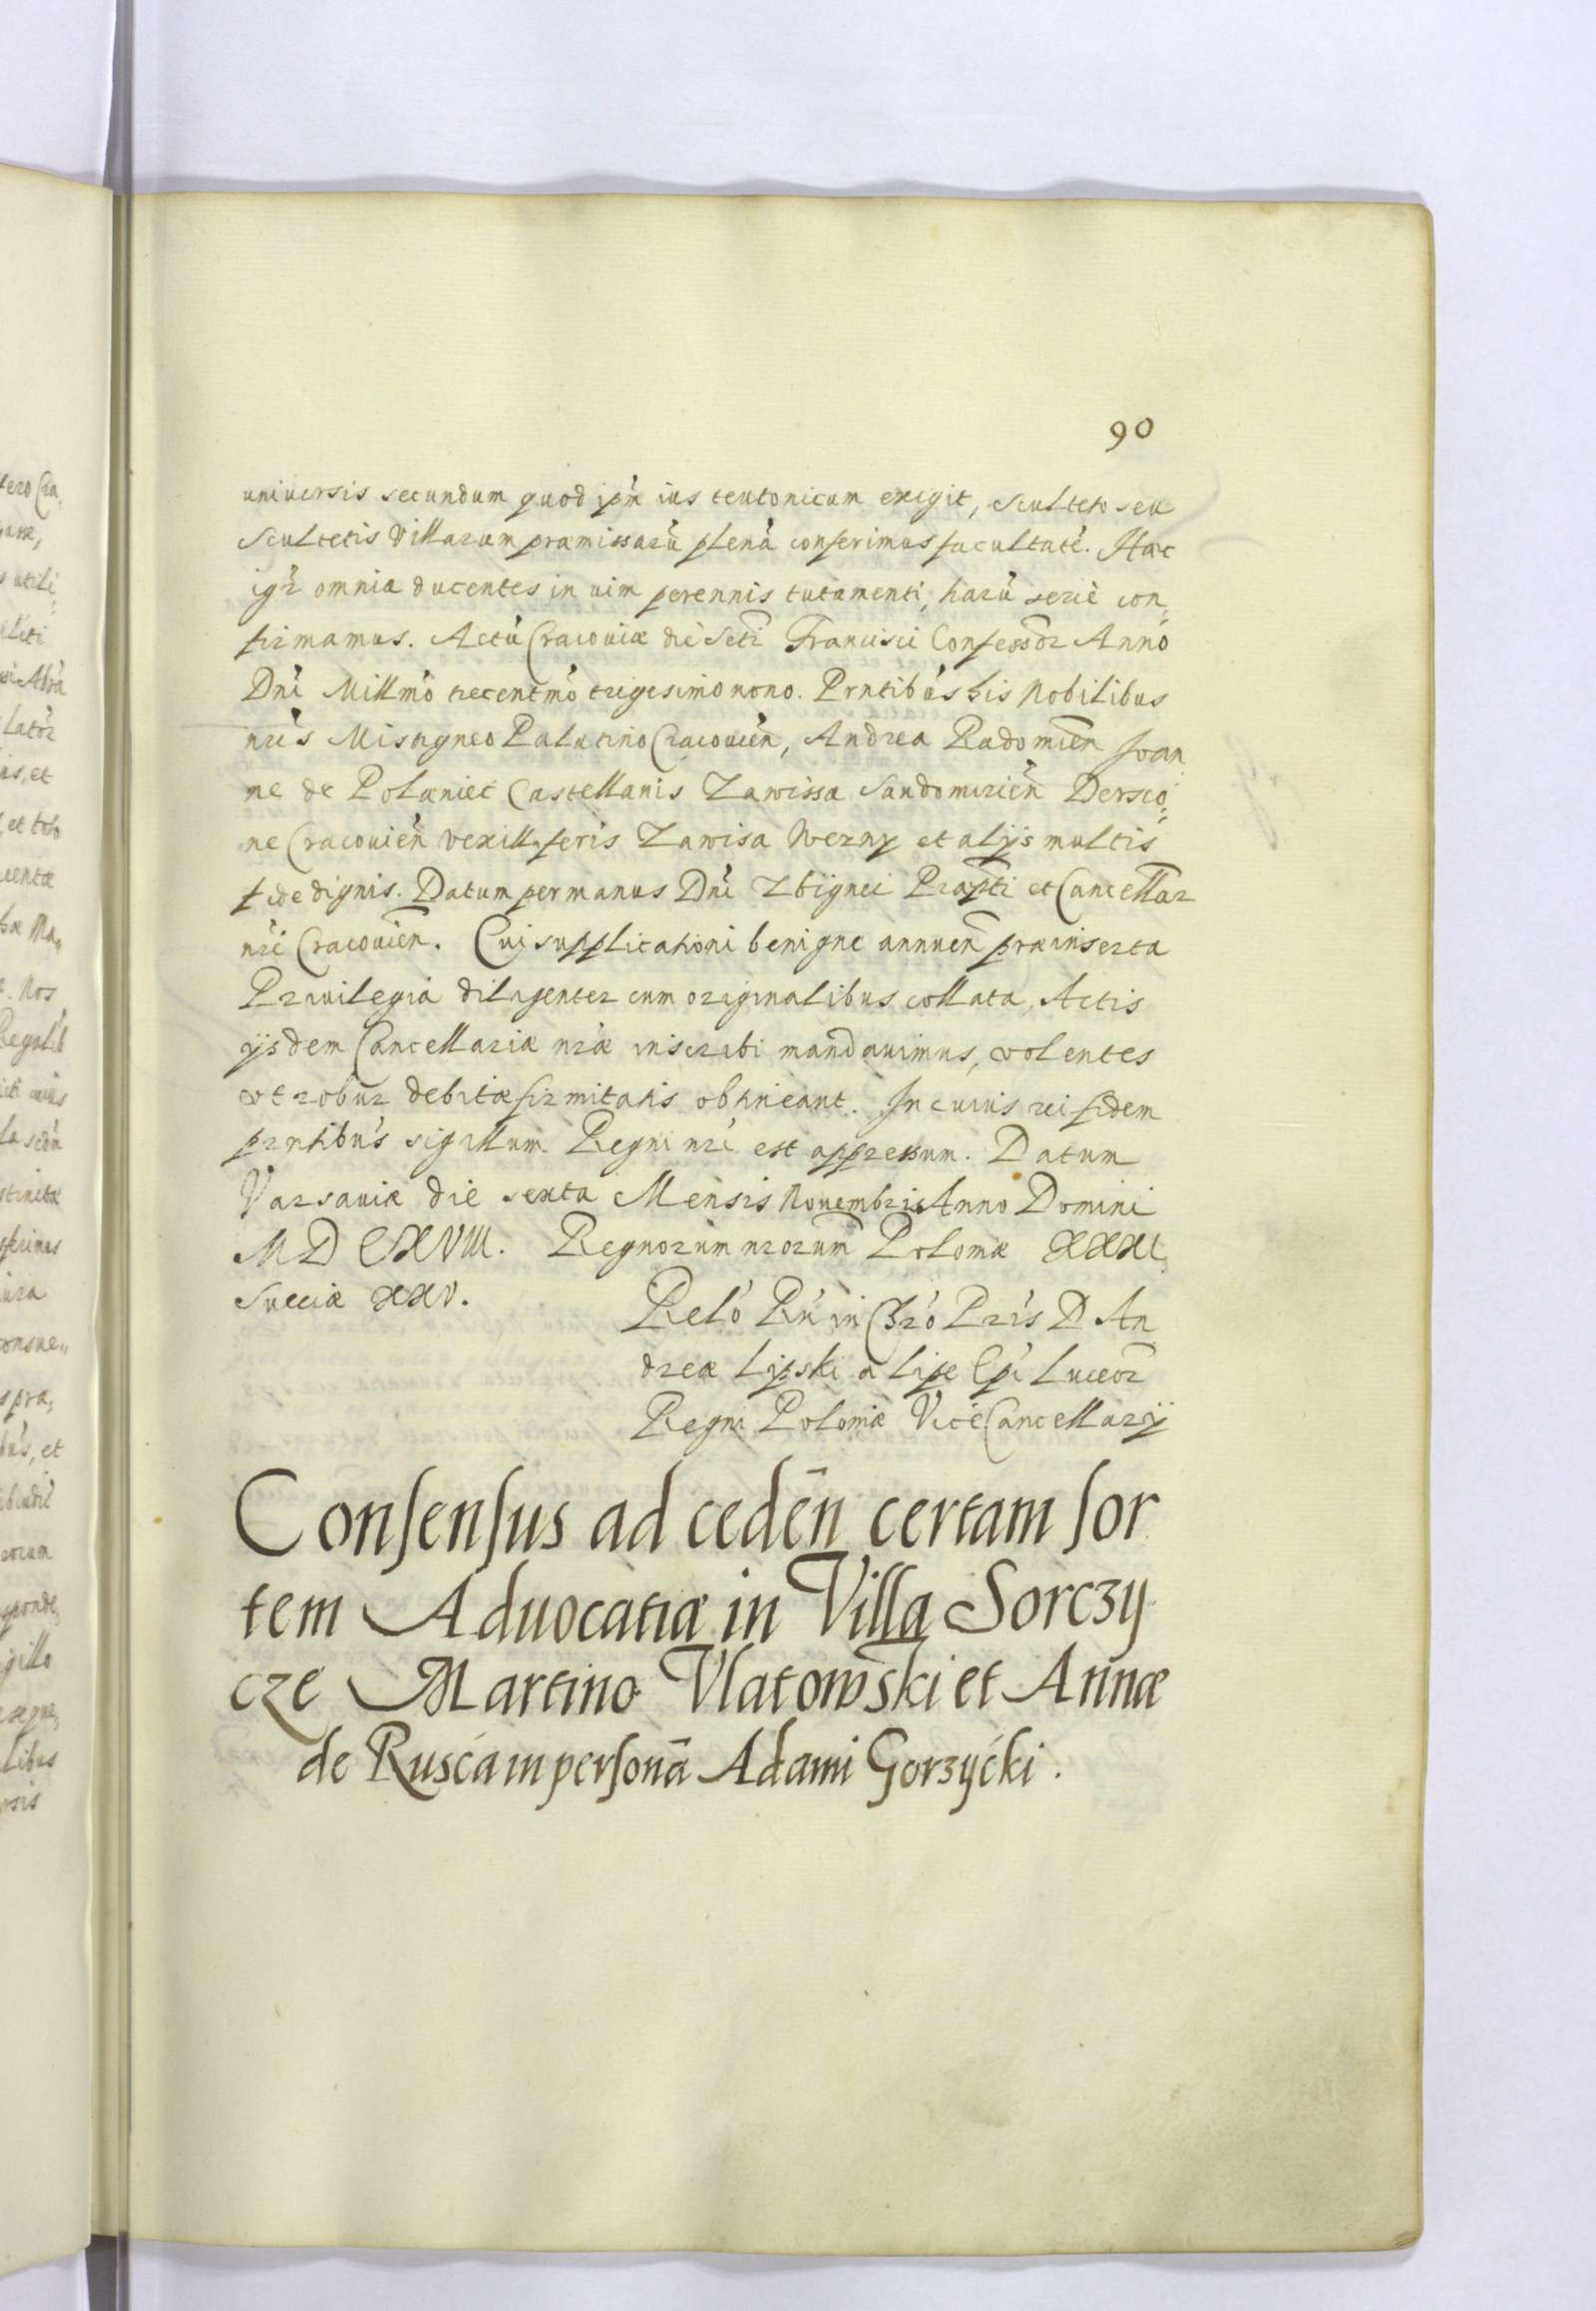 90
universis secundum quod ipm̃ ius teutonicum exigit, Sculteto seu
Scultetis Villarum præmissarũ plenã conferimus facultatẽ. Hæc
igr̃ omnia ducentes in uim perennis tutamenti, harũ seriẽ con„
firmamus. Actũ Cracouiæ diẽ Scti Francisci Confessor̃ Anno
Dni Millmo trecentmo trigesimo nono. Prntibus his Nobilibus
nris Palatino Cracouien, Andrea Radomien Joan
ne de Polaniec Castellanis Zawissa Sandomirien Dersco„
ne Cracouien vexilliferis Zawisa Werny et alijs multis
fide dignis. Datum per manus Dni Zbignei Præpti et Cancellar
nri Cracouien. Cui supplicationi benigne annuen præinserta
Priuilegia diligenter cum originalibus collata, Actis
ijsdem Cancellariæ nræ inscribi mandauimus, volentes
vt robur debitæ firmitatis obtineant. In cuius rei fidem
prntibus sigillum Regni nri est appressum. Datum
Varsauiæ die sexta Mensis Nouembris Anno Domini
M D C XVIII. Regnorum nrorum Poloniæ XXXI,
Sueciæ XXV.
Relo Rń in Chro Pris D An
dreæ Lipski a Lipe Epi Luceor
Regni Poloniæ Vice Cancellarij
Consensus ad ceden̄ certam sor
tem Aduocatiæ in Villa Sorczy
cze Martino Vlatowski et Annæ
de Rusca in personā Adami Gorzycki.